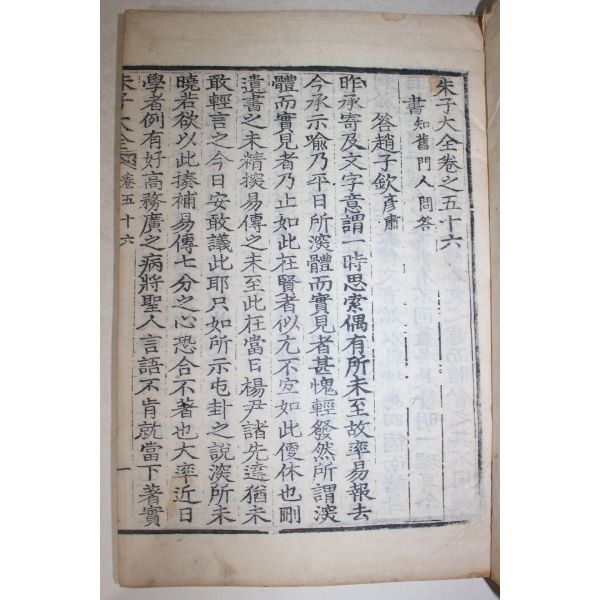 朱子大全卷之五十六
書知舊門人問答
答趙子欽彦肅
昨承寄及文字意謂一時思索偶有所未至故率易報去
今承示喩乃平日所深體而實見者甚愧輕發然所謂深
體而實見者乃止如此在賢者似尤不宜如此便休也剛
遺書之未精撰易傳之未至此在當日楊尹諸先達猶未
敢輕言之今日安敢議此耶只如所示屯卦之說深所未
曉若欲以此揍補易傳七分之心恐合不著也大率近日
學者例有好高務廣之病將聖人言語不肯就當下著實
朱子大全 卷五十六 一